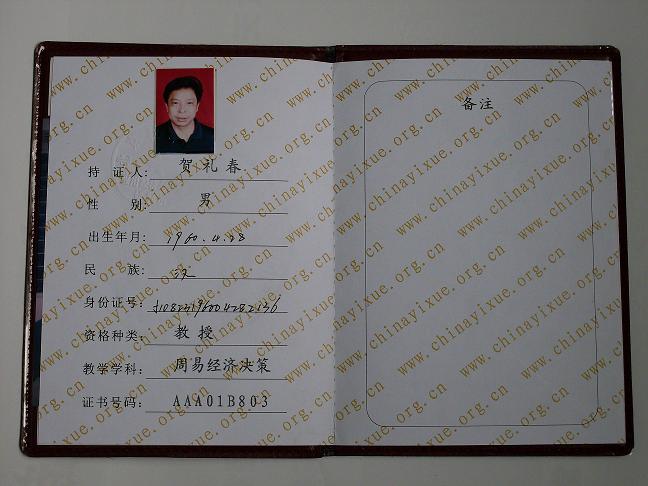 持 证 人: 贺 礼 春
性 别: 男
出生年月: 1960.4.28
民 族: 汉
身份证号:
资格种类: 教 授
教学学科: 周易经济决策
证书号码: AAA01B803
备注
www.chinayixue.org.cn